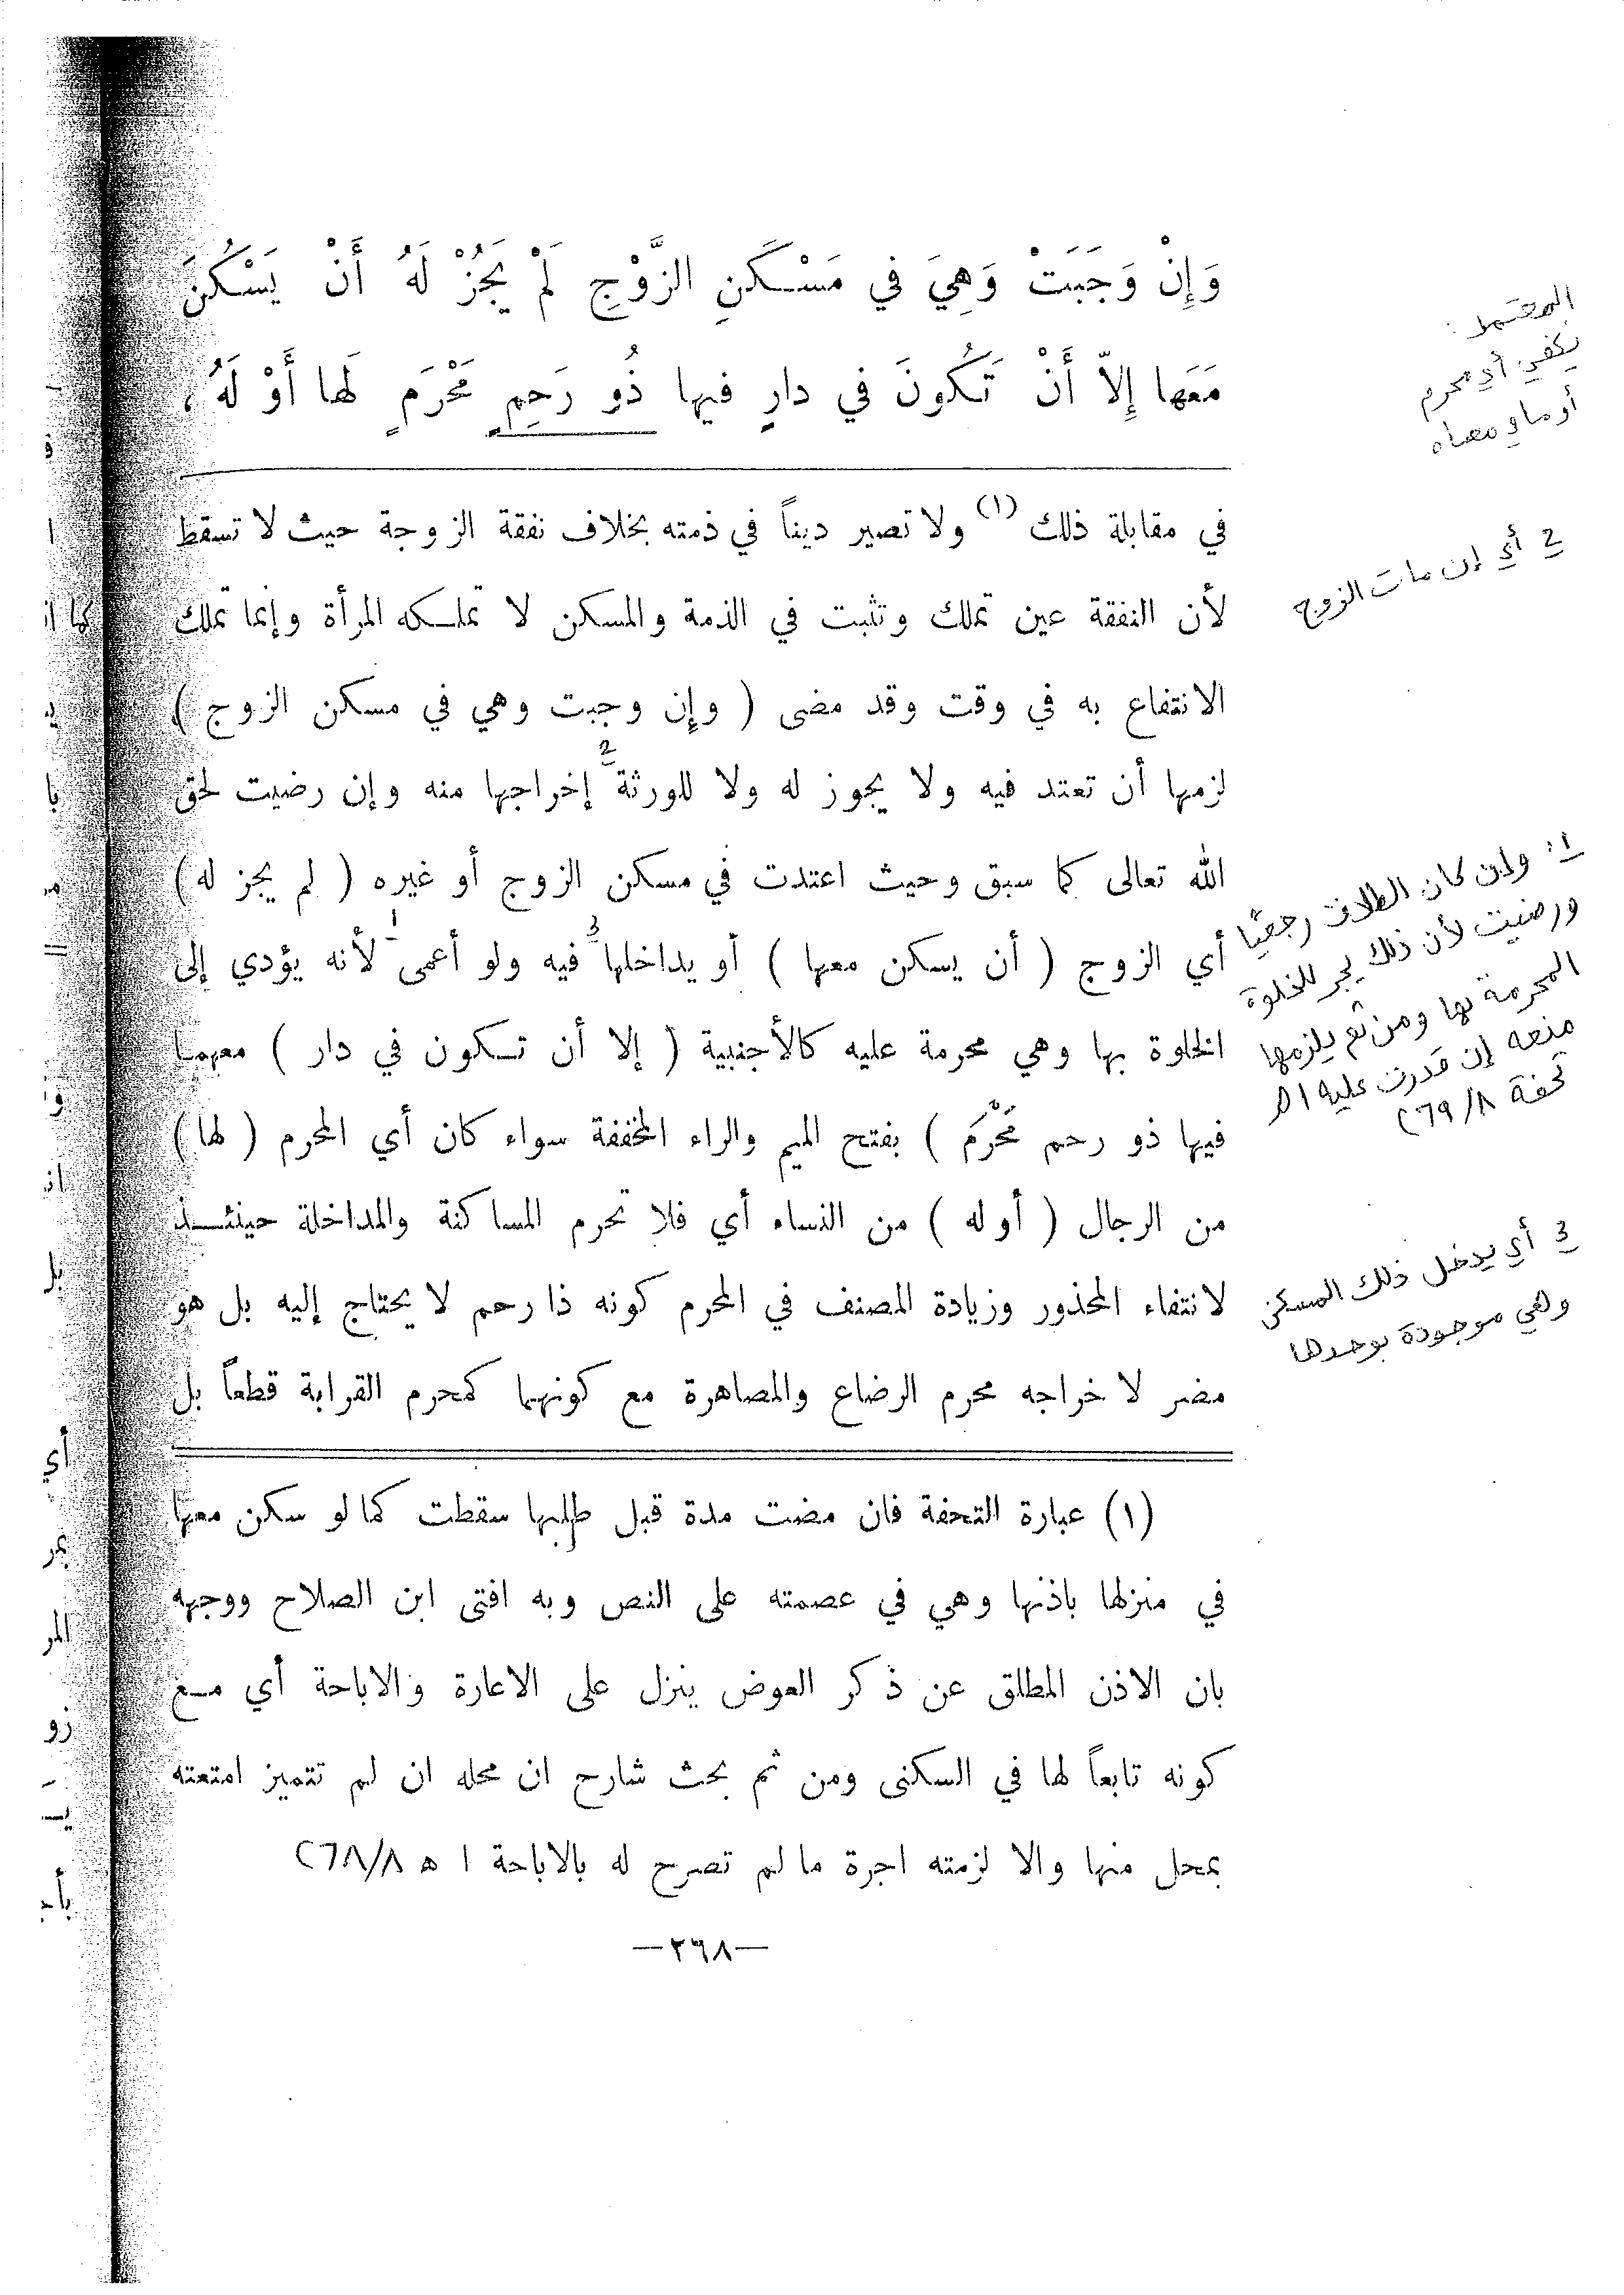 وَإِنْ وَجَبَتْ وَهِيَ في مَسْكَنِ الزَّوْجِ لَمْ يَجُزْ لَهُ أَنْ يَسْكُنَ
مَعَها إِلاّ أَنْ تَكُونَ في دارٍ فيها ذُو رَحِمٍ مَحْرَمٍ لَها أَوْ لَهُ ،
المعتمد :
يكفي أي محرم
أو ما في معناه
في مقابلة ذلك (١) ولا تصير ديناً في ذمته بخلاف نفقة الزوجة حيث لا تسقط
لأن النفقة عين تملك وتثبت في الذمة والمسكن لا تملكه المرأة وإنما تملك
2 أي إن مات الزوج
الانتفاع به في وقت وقد مضى ( وإن وجبت وهي في مسكن الزوج )
لزمها أن تعتد فيه ولا يجوز له ولا للورثة 2 إخراجها منه وإن رضيت لحق
الله تعالى كما سبق وحيث اعتدت في مسكن الزوج أو غيره ( لم يجز له )
أي الزوج ( أن يسكن معها ) أو يداخلها 3 فيه ولو أعمى 1 لأنه يؤدي إلى
الخلوة بها وهي محرمة عليه كالأجنبية ( إلا أن تكون في دار ) معهما
فيها ذو رحم مَحْرَم ) بفتح الميم والراء المخففة سواء كان أي المحرم ( لها )
1: وإن كان الطلاق رجعيًا
ورضيت لأن ذلك يجر للخلوة
المحرمة بها ومن ثم يلزمها
منعه إن قدرت عليه اهـ
تحفة ٨/٢٦٩
من الرجال ( أو له ) من النساء أي فلا تحرم المساكنة والمداخلة حينئذ
لانتفاء المحذور وزيادة المصنف في المحرم كونه ذا رحم لا يحتاج إليه بل هو
مضر لاخراجه محرم الرضاع والمصاهرة مع كونهما كمحرم القرابة قطعاً بل
3 أي يدخل ذلك المسكن
وهي موجودة بوحدها
(١) عبارة التحفة فان مضت مدة قبل طلبها سقطت كما لو سكن معها
في منزلها باذنها وهي في عصمته على النص وبه افتى ابن الصلاح ووجهه
بان الاذن المطلق عن ذكر العوض ينزل على الاعارة والاباحة أي مع
كونه تابعاً لها في السكنى ومن ثم بحث شارح ان محله ان لم تتميز امتعته
بمحل منها والا لزمته اجرة ما لم تصرح له بالاباحة ا ه ٨/٢٦٨
—٢٦٨—